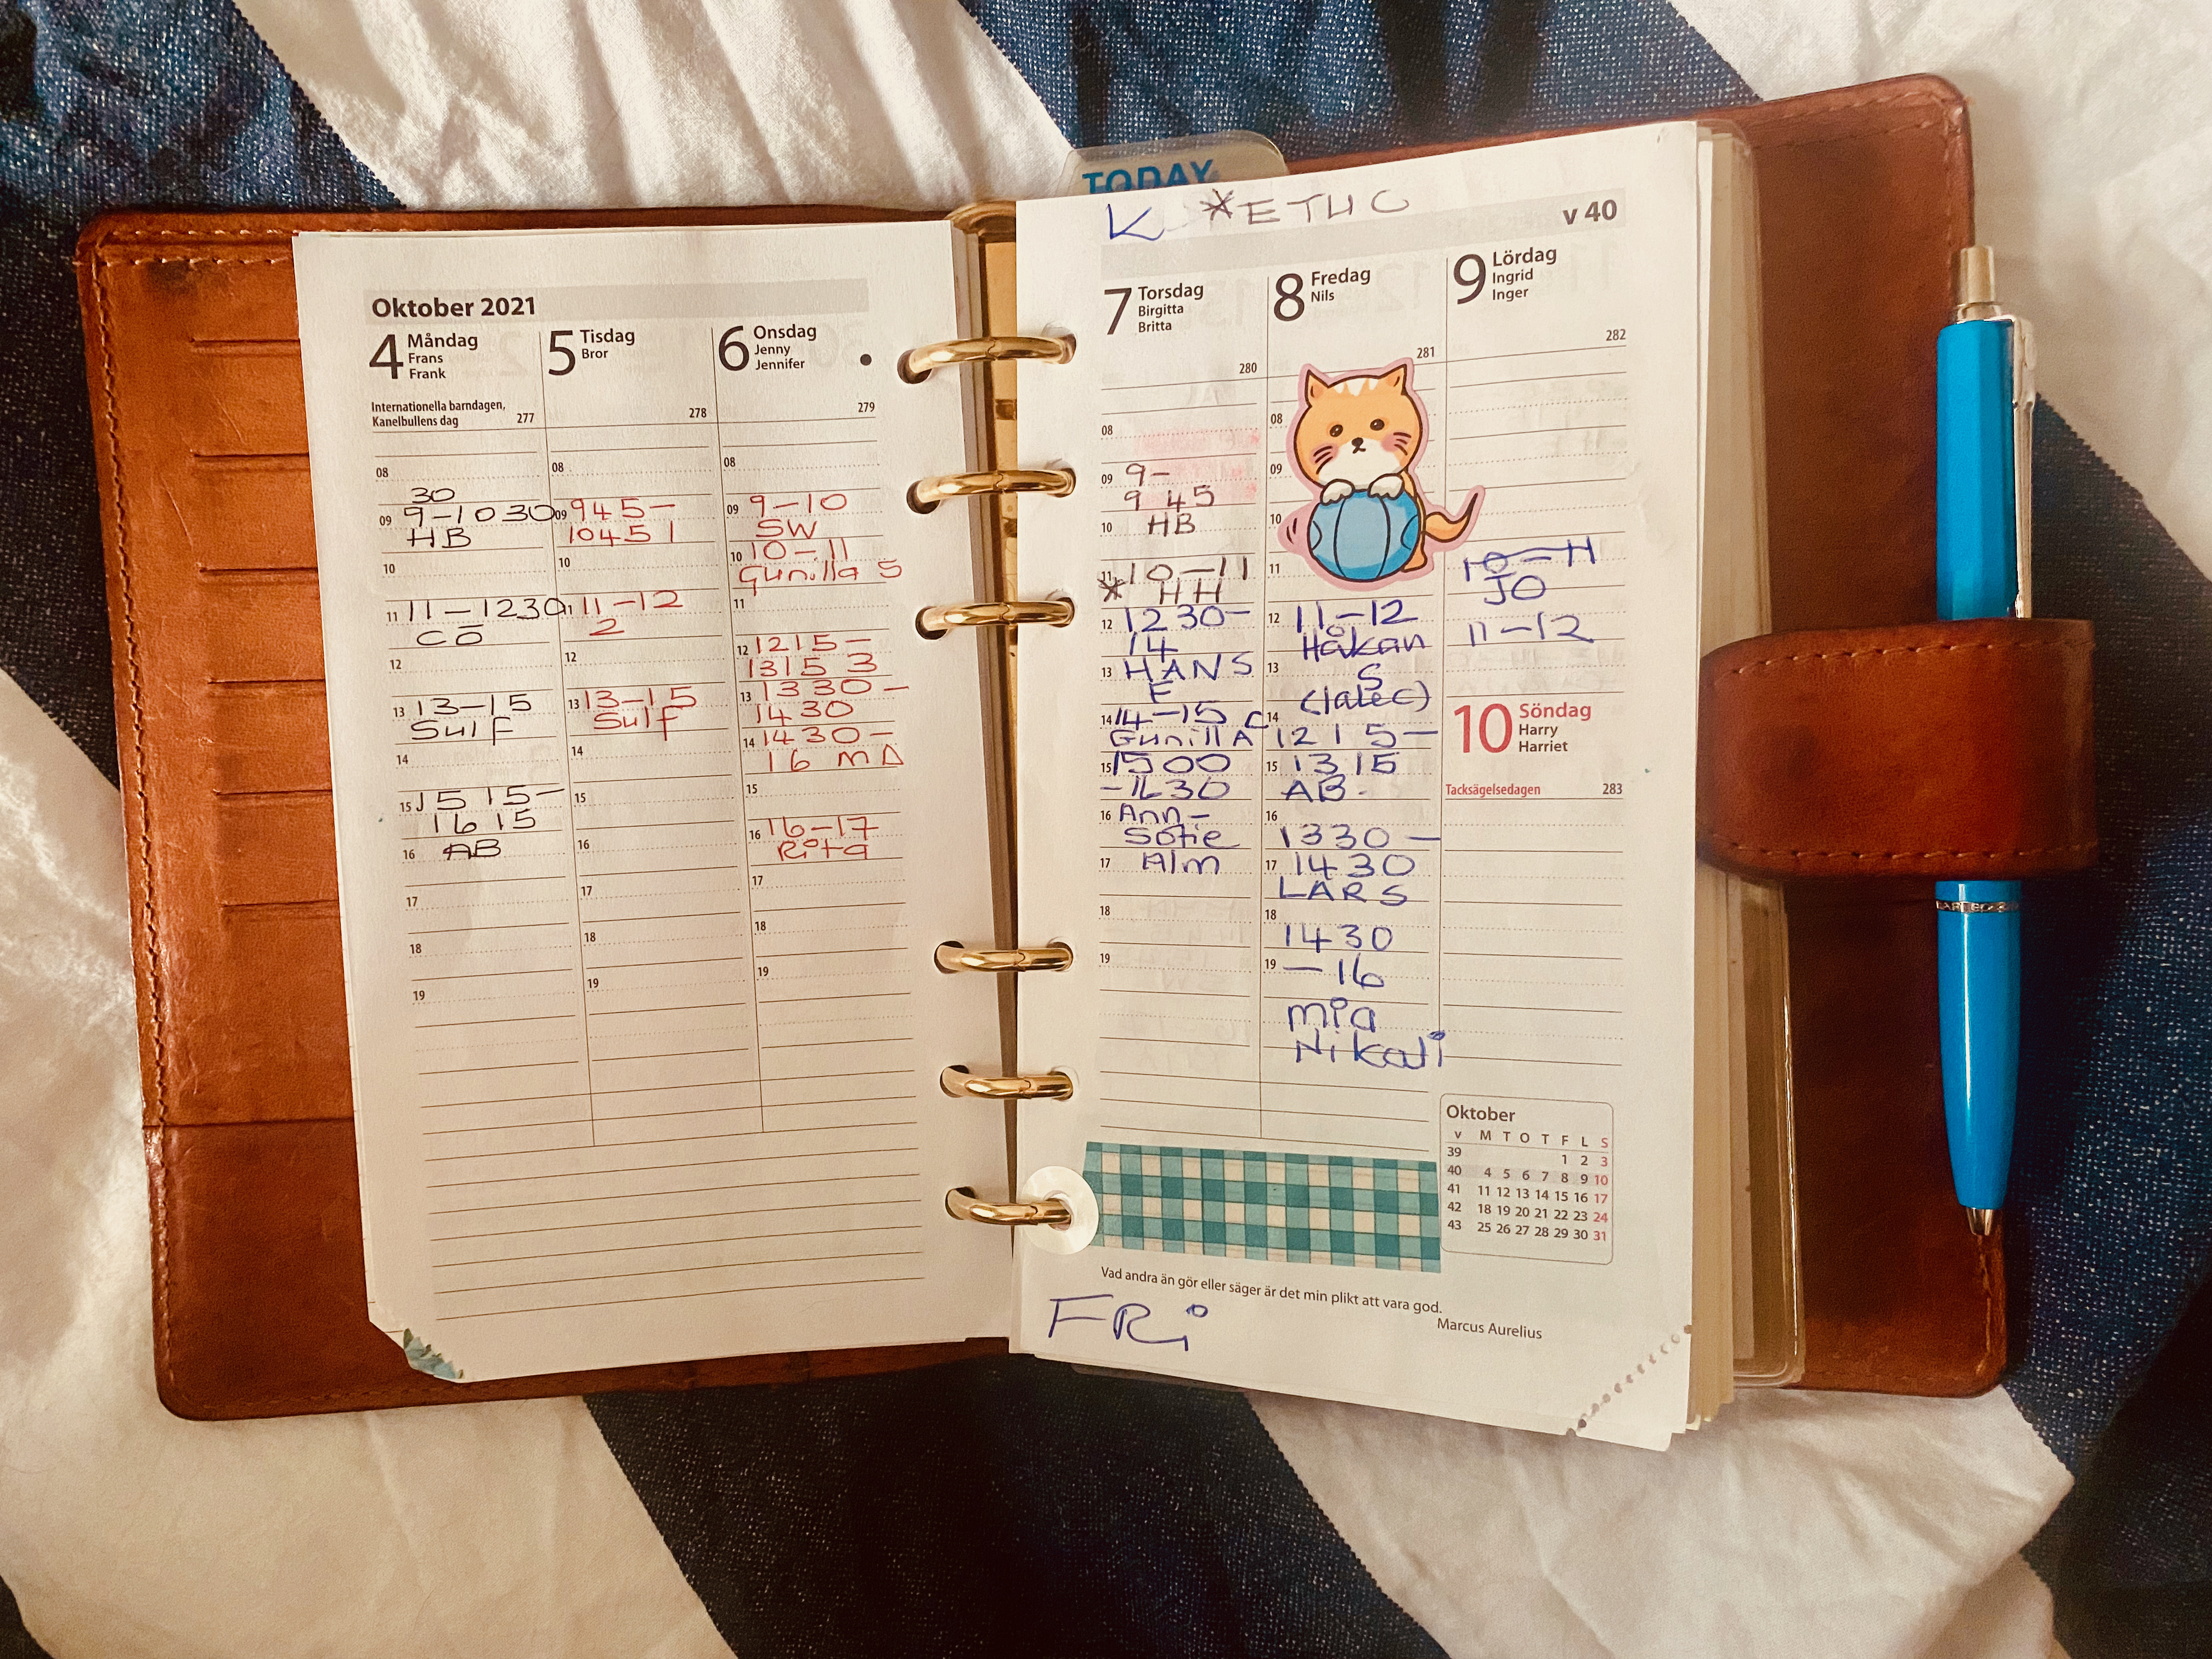 TODAY
Oktober 2021
4 Måndag
Frans
Frank
Internationella barndagen,
Kanelbullens dag 277
08
30
09 9-1030
HB
10
11 11-1230
CÖ
12
13 13-15
Sulf
14
15 1515-
1615
16 AB
17
18
19
5 Tisdag
Bror
278
08
09 945-
1045 1
10
11 11-12
2
12
13 13-15
Sulf
14
15
16
17
18
19
6 Onsdag
Jenny
Jennifer
279
08
09 9-10
SW
10 10-11
Gunilla S
11
12 1215-
1315 3
13 1330-
1430
14 1430-
16 MA
15
16 16-17
Rita
17
18
19
K *ETHC
v 40
7 Torsdag
Birgitta
Britta
280
08
09 9-
9 45
10 HB
11 10-11
* HH
12 1230-
14
13 HANS
F
14 14-15 C
Gunilla
15 1500
-1630
16 Ann-
Sofie
17 Alm
18
19
8 Fredag
Nils
281
08
09
10
11
12 11-12
Håkan
13 S
14
1215-
15 1315
AB.
16
1330-
17 1430
LARS
18
1430
19 -16
Mia
9 Lördag
Ingrid
Inger
282
10-11
JO
11-12
10 Söndag
Harry
Harriet
Tacksägelsedagen 283
Oktober
v M T O T F L S
39 1 2 3
40 4 5 6 7 8 9 10
41 11 12 13 14 15 16 17
42 18 19 20 21 22 23 24
43 25 26 27 28 29 30 31
Vad andra än gör eller säger är det min plikt att vara god.
Marcus Aurelius
FRi